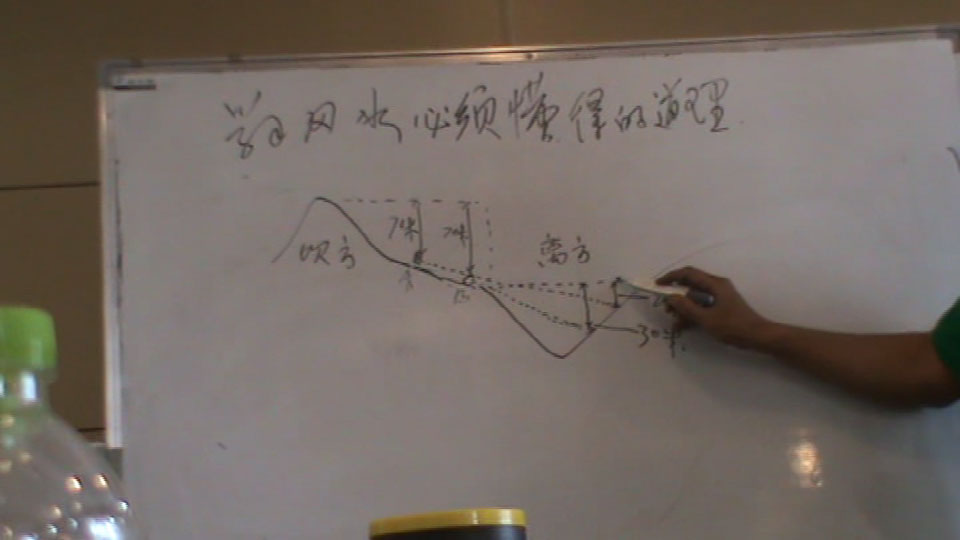 学风水必须懂得的道理
70米 70米
坎方 离方
30米